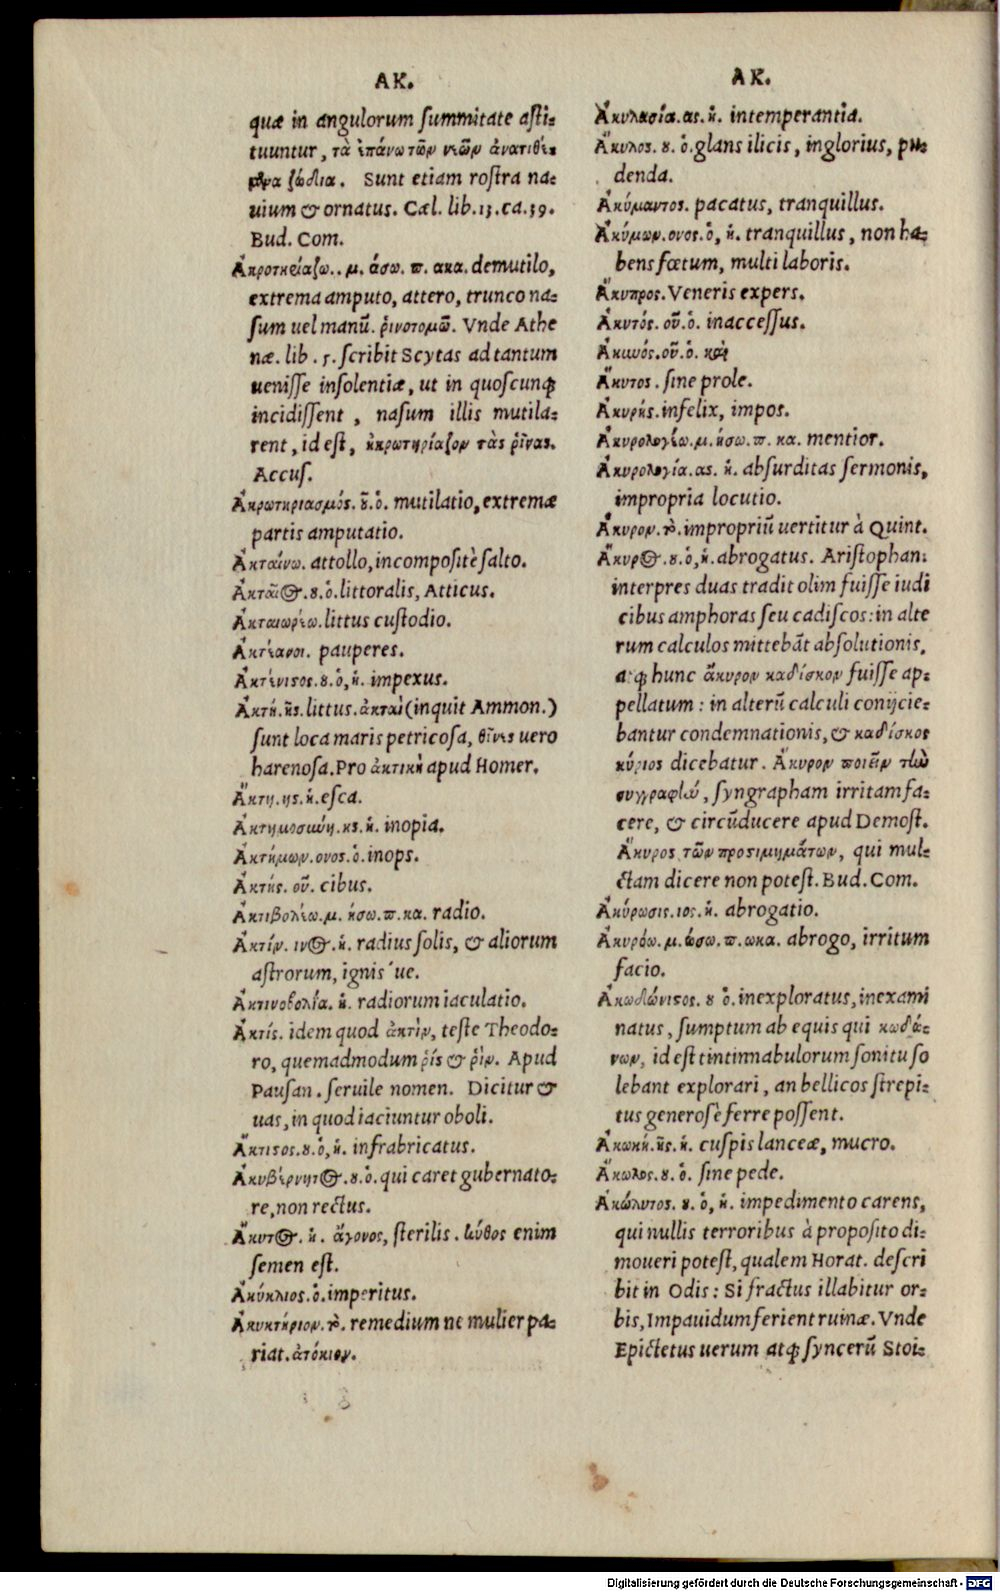 AK.
quæ in angulorum summitate asti-
tuuntur, τὰ ἐπάνω τῶν νεῶν ἀνατιθέ-
ζώδια. Sunt etiam rostra na-
uium & ornatus. Cæl. lib. 13. ca. 39.
Bud. Com.
demutilo,
extrema amputo, attero, trunco na-
sum uel manũ. ῥινοτομῶ. Vnde Athe
næ. lib. 5. scribit Scytas ad tantum
uenisse insolentiæ, ut in quoscunq;
incidissent, nasum illis mutila-
rent, id est, ἠκρωτηρίαζον τὰς ῥῖνας.
Accus.
Ἀκρωτηριασμός. ȣ͂. ὁ. mutilatio, extremæ
partis amputatio.
Ἀκταίνω. attollo, incompositè salto.
Ἀκταῖος. ȣ. ὁ. littoralis, Atticus.
Ἀκταιωρέω. littus custodio.
Ἀκτέανοι. pauperes.
Ἀκτένιστος. ȣ. ὁ, ἡ. impexus.
Ἀκτή. ῆς. littus. ἀκταὶ (inquit Ammon.)
sunt loca maris petricosa, θῖνες uero
harenosa. Pro ἀκτικὴ apud Homer.
Ἄκτη. ης. ἡ. esca.
Ἀκτημοσύνη. ης. ἡ. inopia.
Ἀκτήμων. ονος. ὁ. inops.
Ἀκτής. οῦ. cibus.
Ἀκτιβολέω. μ. ήσω. π. κα. radio.
Ἀκτίν. ινος. ἡ. radius solis, & aliorum
astrorum, ignis ue.
Ἀκτινοβολία. ἡ. radiorum iaculatio.
Ἀκτίς. idem quod ἀκτὶν, teste Theodo-
ro, quemadmodum ῥὶς & ῥὶν. Apud
Pausan. seruile nomen. Dicitur &
uas, in quod iaciuntur oboli.
Ἄκτιστος. ȣ. ὁ, ἡ. infabricatus.
Ἀκυβέρνητος. ȣ. ὁ. qui caret gubernato-
re, non rectus.
Ἄκυτος. ἡ. ἄγονος, sterilis. κύθος enim
semen est.
Ἀκύκλιος. ὁ. imperitus.
Ἀκυκτήριον. τὸ. remedium ne mulier pa-
riat. ἀτόκιον.
AK.
Ἀκυλασία. ας. ἡ. intemperantia.
Ἄκυλος. ȣ. ὁ. glans ilicis, inglorius, pu-
denda.
Ἀκύμαντος. pacatus, tranquillus.
Ἀκύμων. ονος. ὁ, ἡ. tranquillus, non ha-
bens fœtum, multi laboris.
Ἄκυπρος. Veneris expers.
Ἀκυτός. οῦ. ὁ. inaccessus.
οῦ. ὁ.
Ἄκυτος. sine prole.
Ἀκυρής. infelix, impos.
Ἀκυρολογέω. μ. ήσω. π. κα. mentior.
Ἀκυρολογία. ας. ἡ. absurditas sermonis,
impropria locutio.
Ἄκυρον. τὸ. impropriũ uertitur à Quint.
Ἄκυρος. ȣ. ὁ, ἡ. abrogatus. Aristophan:
interpres duas tradit olim fuisse iudi
cibus amphoras seu cadiscos: in alte
rum calculos mittebãt absolutionis,
atq; hunc ἄκυρον καδίσκον fuisse ap-
pellatum: in alterũ calculi conijcie-
bantur condemnationis, & καδίσκος
κύριος dicebatur. Ἄκυρον ποιεῖν τὴν
συγγραφὴν, syngrapham irritam fa-
cere, & circũducere apud Demost.
Ἄκυρος τῶν προστιμημάτων, qui mul-
ctam dicere non potest. Bud. Com.
Ἀκύρωσις. ιος. ἡ. abrogatio.
Ἀκυρόω. μ. ώσω. π. ωκα. abrogo, irritum
facio.
Ἀκωδώνιστος. ȣ ὁ. inexploratus, inexami
natus, sumptum ab equis qui κωδώ-
νων, id est tintinnabulorum sonitu so
lebant explorari, an bellicos strepi-
tus generosè ferre possent.
Ἀκωκή. ῆς. ἡ. cuspis lanceæ, mucro.
Ἄκωλος. ȣ. ὁ. sine pede.
Ἀκώλυτος. ȣ. ὁ, ἡ. impedimento carens,
qui nullis terroribus à proposito di-
moueri potest, qualem Horat. descri
bit in Odis: Si fractus illabitur or-
bis, Impauidum ferient ruinæ. Vnde
Epictetus uerum atq; syncerũ Stoi-
Digitalisierung gefördert durch die Deutsche Forschungsgemeinschaft - DFG